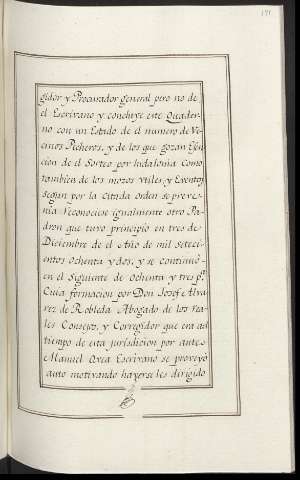 191
gidor y Procurador general pero no de
el Escrivano y concluye este Quader-
no con un Estado de el numero de Ve-
cinos Pecheros, y de los que gozan Ejen-
ción de el Sorteo por hidalguia Como
tambien de los mozos vtiles, y Eventos
segun por la Citada orden se preve-
nia Reconociese igualmente otro Pa-
dron que tuvo principio en tres de
Diciembre de el Año de mil seteci-
entos ochenta y dos, y se continuó
en el Siguiente de ochenta y tres pr.
Cuia formacion por Don Josef Alva-
rez de Robleda Abogado de los rea-
les Consejos, y Corregidor que era al
tiempo de esta jurisdicion por ante
Manuel Ovea Escrivano se proveyó
auto motivando haverseles dirigido